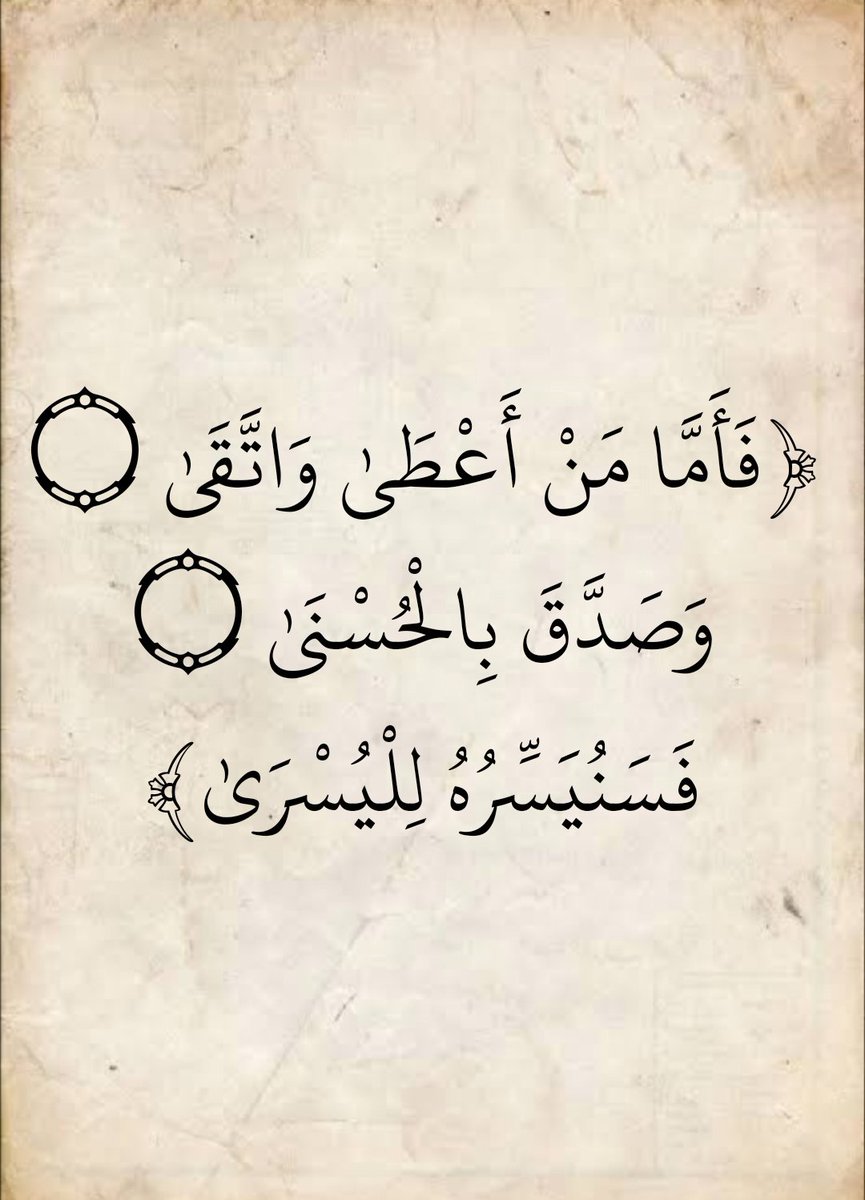 ﴿فَأَمَّا مَنْ أَعْطَىٰ وَاتَّقَىٰ ۝
وَصَدَّقَ بِالْحُسْنَىٰ ۝
فَسَنُيَسِّرُهُ لِلْيُسْرَىٰ﴾